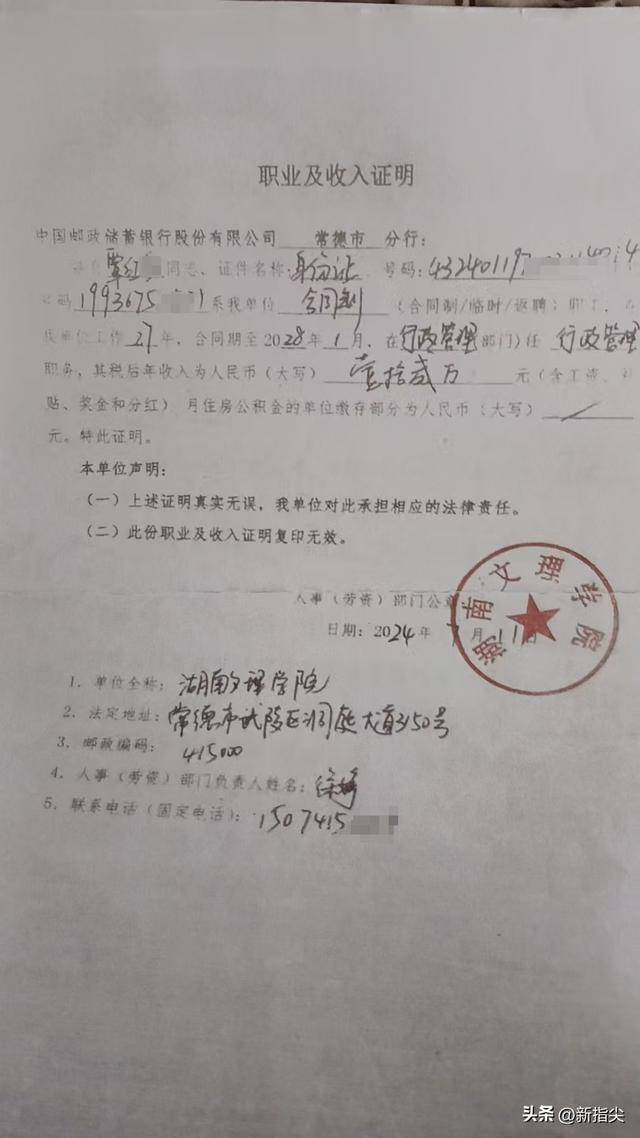 职业及收入证明
中国邮政储蓄银行股份有限公司 常德市 分行：
覃红 同志，证件名称：身份证 号码：43240119
号码 1993675 系我单位 合同制 （合同制/临时/返聘）职工，在
我单位工作 27 年，合同期至 2028 年 1 月，在 行政管理 部门）任 行政管理
职务，其税后年收入为人民币（大写） 壹拾贰万 元（含工资、补
贴、奖金和分红） 月住房公积金的单位缴存部分为人民币（大写） /
元。特此证明。
本单位声明：
（一）上述证明真实无误，我单位对此承担相应的法律责任。
（二）此份职业及收入证明复印无效。
人事（劳资）部门公章
日期：2024 年 7 月 11 日
湖南文理学院
1. 单位全称：湖南文理学院
2. 法定地址：常德市武陵区洞庭大道3150号
3. 邮政编码：415000
4. 人事（劳资）部门负责人姓名：徐
5. 联系电话（固定电话）：1507415
头条 @新指尖